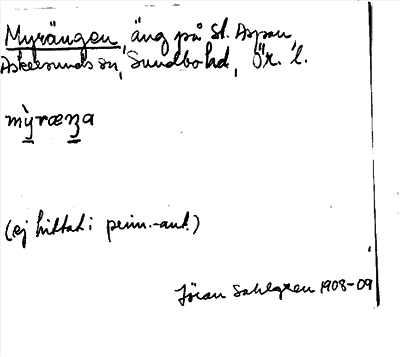 Myrängen, äng på St. Aspan,
Askersunds sn, Sundbo hd, Ör. l.
mỳræŋa
(ej hittat i prim.-ant.)
Jöran Sahlgren 1908-09